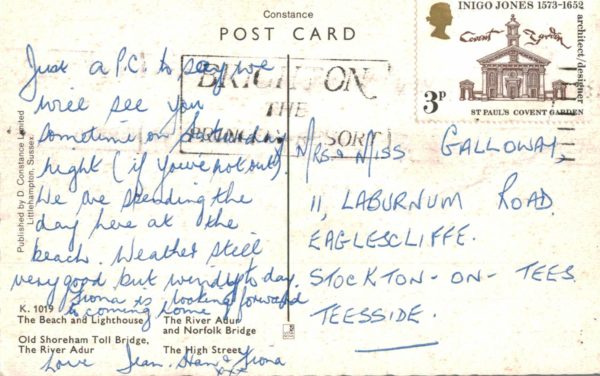 Constance
POST CARD
INIGO JONES 1573-1652
architect/designer
Covent Garden
3P
ST PAUL'S COVENT GARDEN
BRIGHTON
THE
Published by D Constance Limited
Littlehampton, Sussex.
Just a P.C. to say we
will see you
sometime on Saturday
night (if you're not out)
We are spending the
day here at the
beach. Weather still
very good but windy to day.
Fiona is looking forward
to coming home
Love Jean, Stan & Fiona
xxx
MRS & MISS GALLOWAY,
11, LABURNUM ROAD.
EAGLESCLIFFE.
STOCKTON-ON-TEES.
TEESSIDE.
K. 1019
The Beach and Lighthouse
The River Adur
and Norfolk Bridge
Old Shoreham Toll Bridge,
The River Adur
The High Street